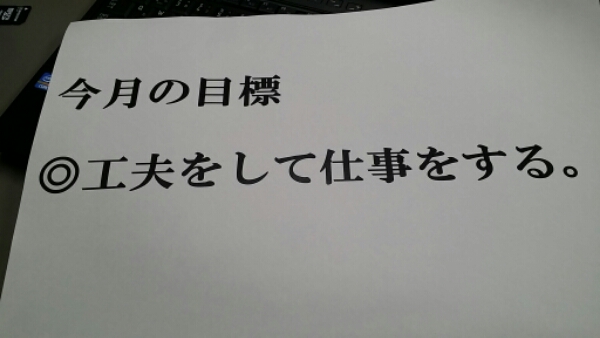 今月の目標
◎工夫をして仕事をする。